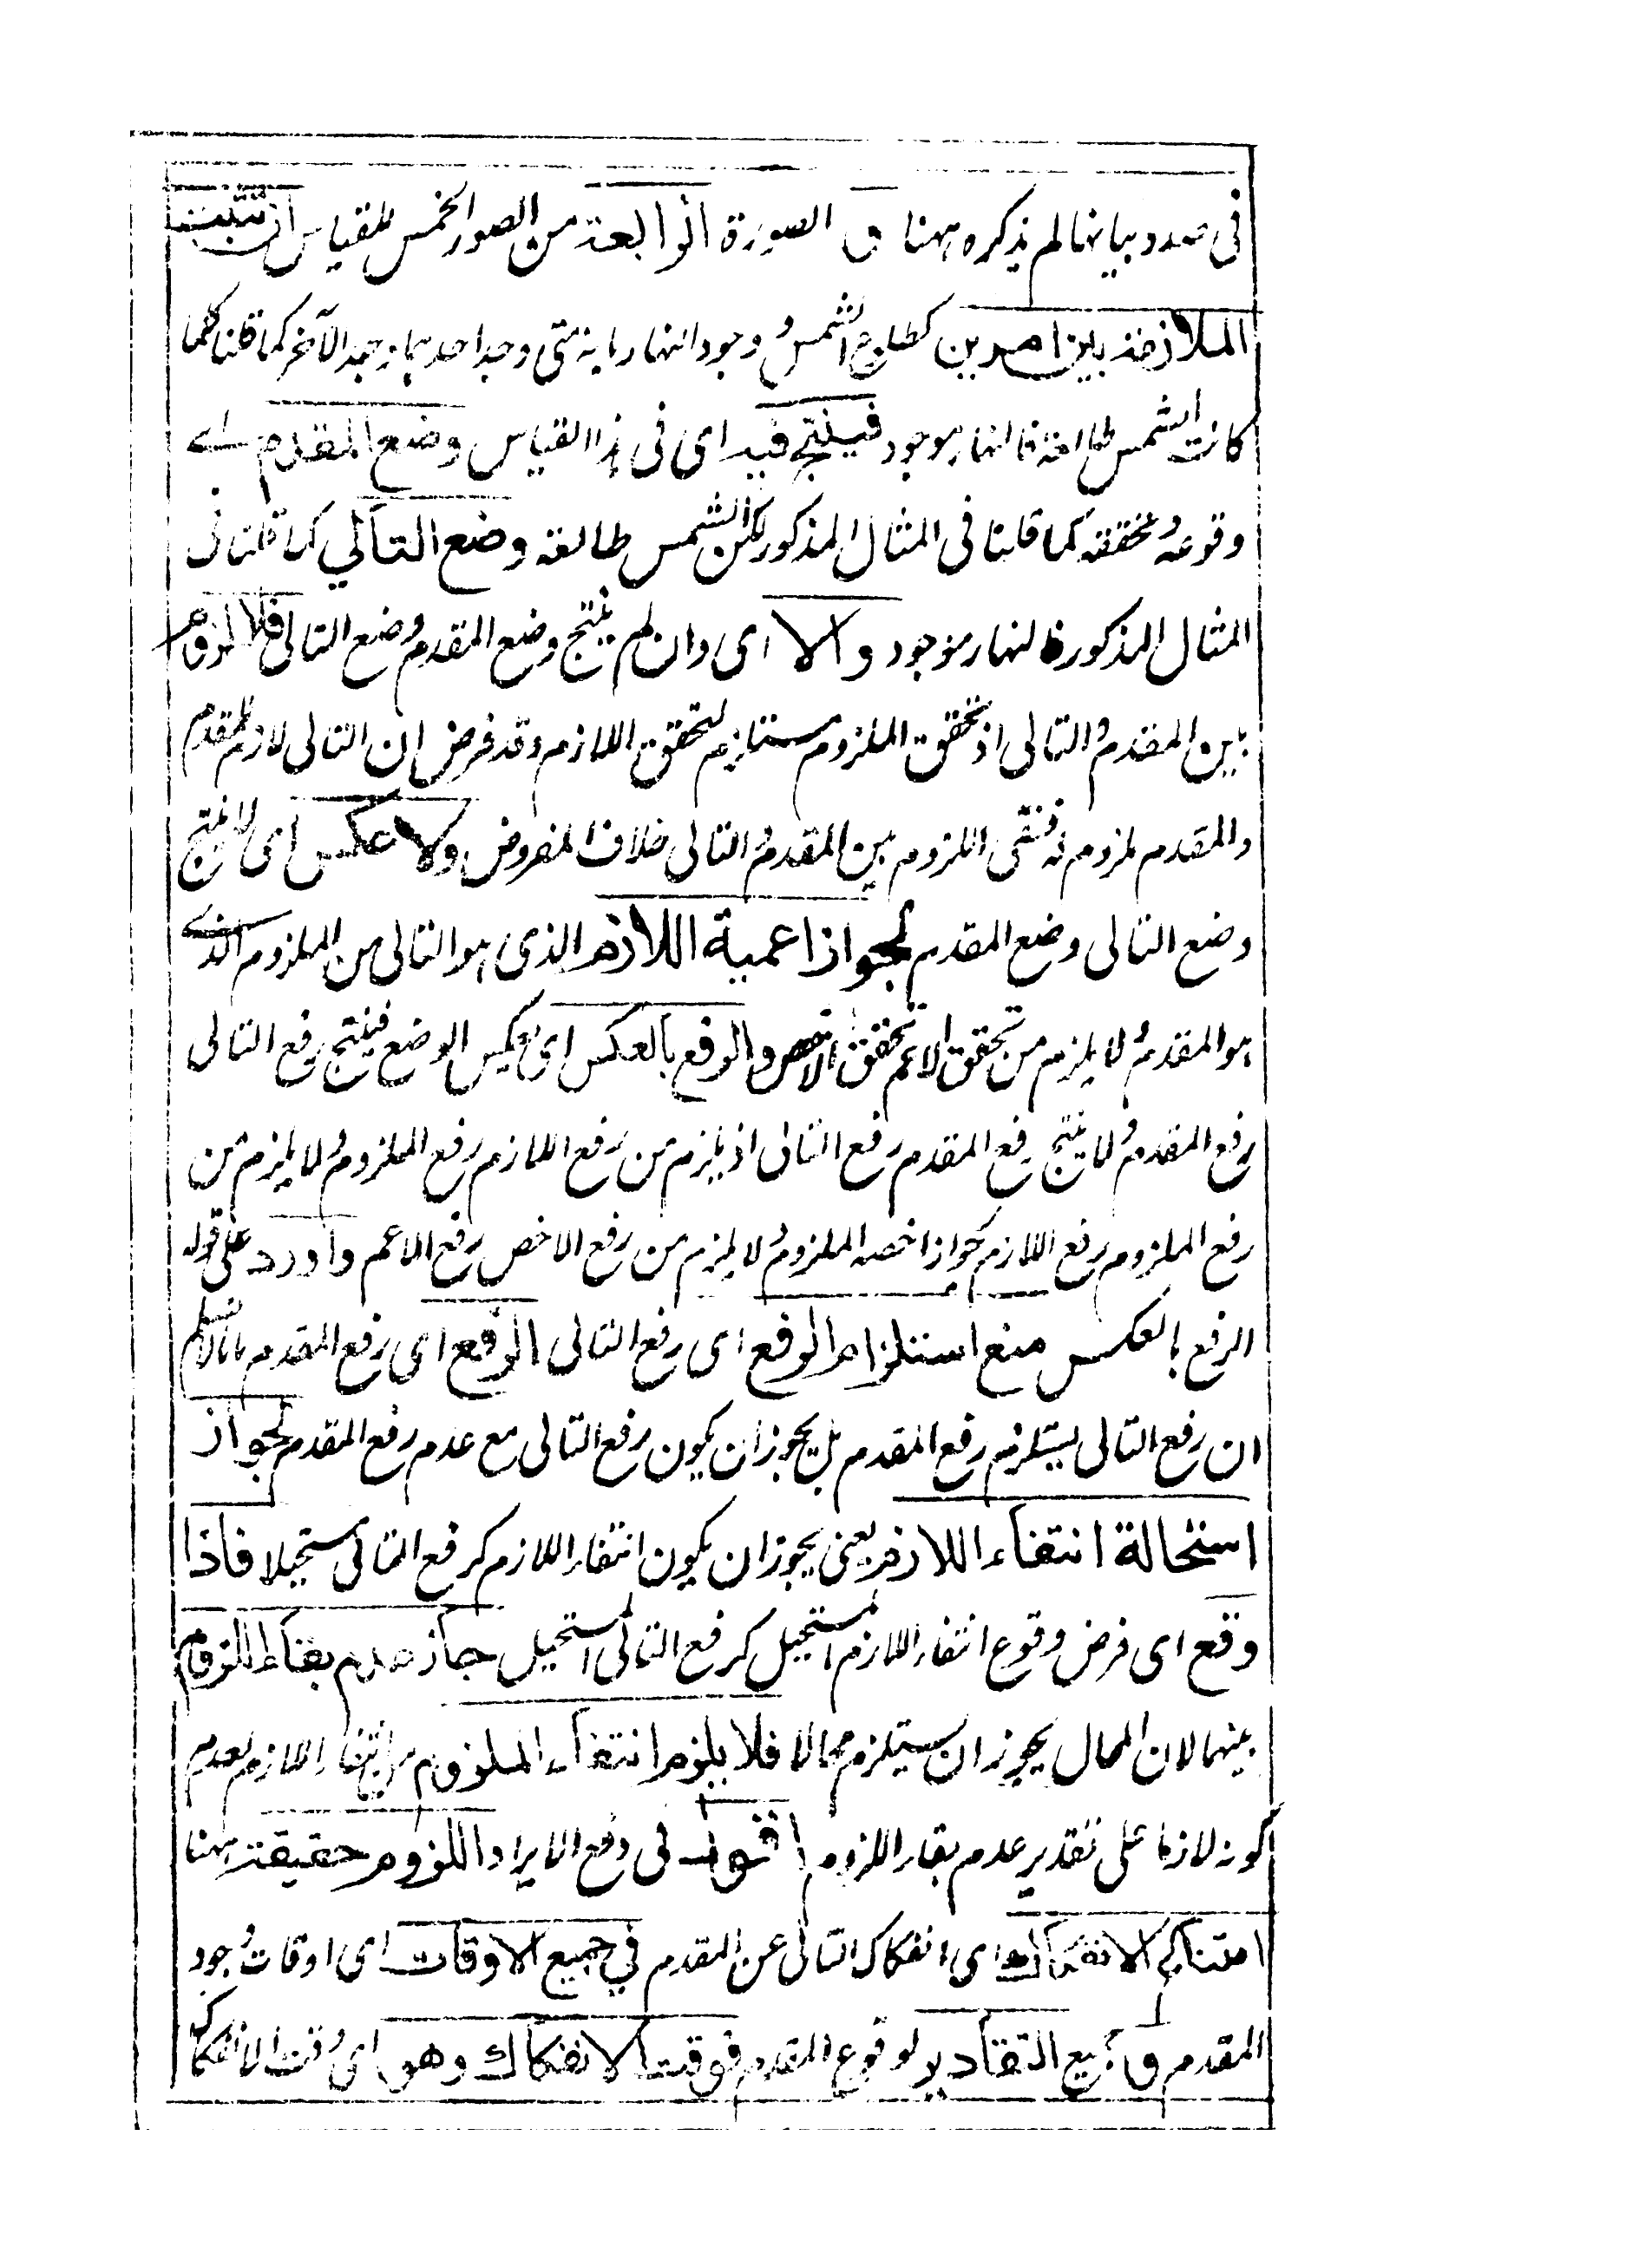 فى صدد بيانها لم يذكره ههنا و الصورة الرابعة من الصور الخمس للقياس ان تثبت
الملازمة بين امرين كطلوع الشمس ووجود النهار بانه متى وجد احدهما وجد الآخر كما قلنا كلما
كانت الشمس طالعة فالنهار موجود فينتج فيه اى فى هذا القياس وضع المقدم اے
وقوعه وتحققه كما قلنا فى المثال المذكور لكن الشمس طالعة وضع التالي كما قلنا فى
المثال المذكور فالنهار موجود والا اى وان لم ينتج وضع المقدم وضع التالى فلا لزوم
بين المقدم والتالى اذ تحقق الملزوم مستلزم لتحقق اللازم وقد فرض ان التالى لازم للمقدم
والمقدم ملزوم له فنفى اللزوم بين المقدم والتالى خلاف المفروض ولا عكس اى لا ينتج
وضع التالى وضع المقدم لجواز اعمية اللازم الذى هو التالى من الملزوم الذے
هو المقدم ولا يلزم من تحقق الاعم تحقق الاخص والرفع بالعكس اى بعكس الوضع فينتج رفع التالى
رفع المقدم ولا ينتج رفع المقدم رفع التالى اذ يلزم من رفع اللازم رفع الملزوم ولا يلزم من
رفع الملزوم رفع اللازم لجواز اخصية الملزوم ولا يلزم من رفع الاخص رفع الاعم واورد على قوله
الرفع بالعكس منع استلزام الرفع اى رفع التالى الرفع اى رفع المقدم بانا لا نسلم
ان رفع التالى يستلزم رفع المقدم بل يجوز ان يكون رفع التالى مع عدم رفع المقدم لجواز
استحالة انتفاء اللازم يعنى يجوز ان يكون انتفاء اللازم كرفع التالى مستحيلا فاذا
وقع اى فرض وقوع انتفاء اللازم المستحيل كرفع التالى المستحيل جاز عدم بقاء اللزوم
بينهما لان المحال يجوز ان يستلزم محالا فلا يلزم انتفاء الملزوم من انتفاء اللازم لعدم
كونه لازما على تقدير عدم بقاء اللزوم اقول فى دفع الايراد اللزوم حقيقة ههنا
امتناع الانفكاك اى انفكاك التالى عن المقدم في جميع الاوقات اى اوقات وجود
المقدم و جميع التقادير لوقوع المقدم فوقت الانفكاك وهو اى وقت الانفكاك